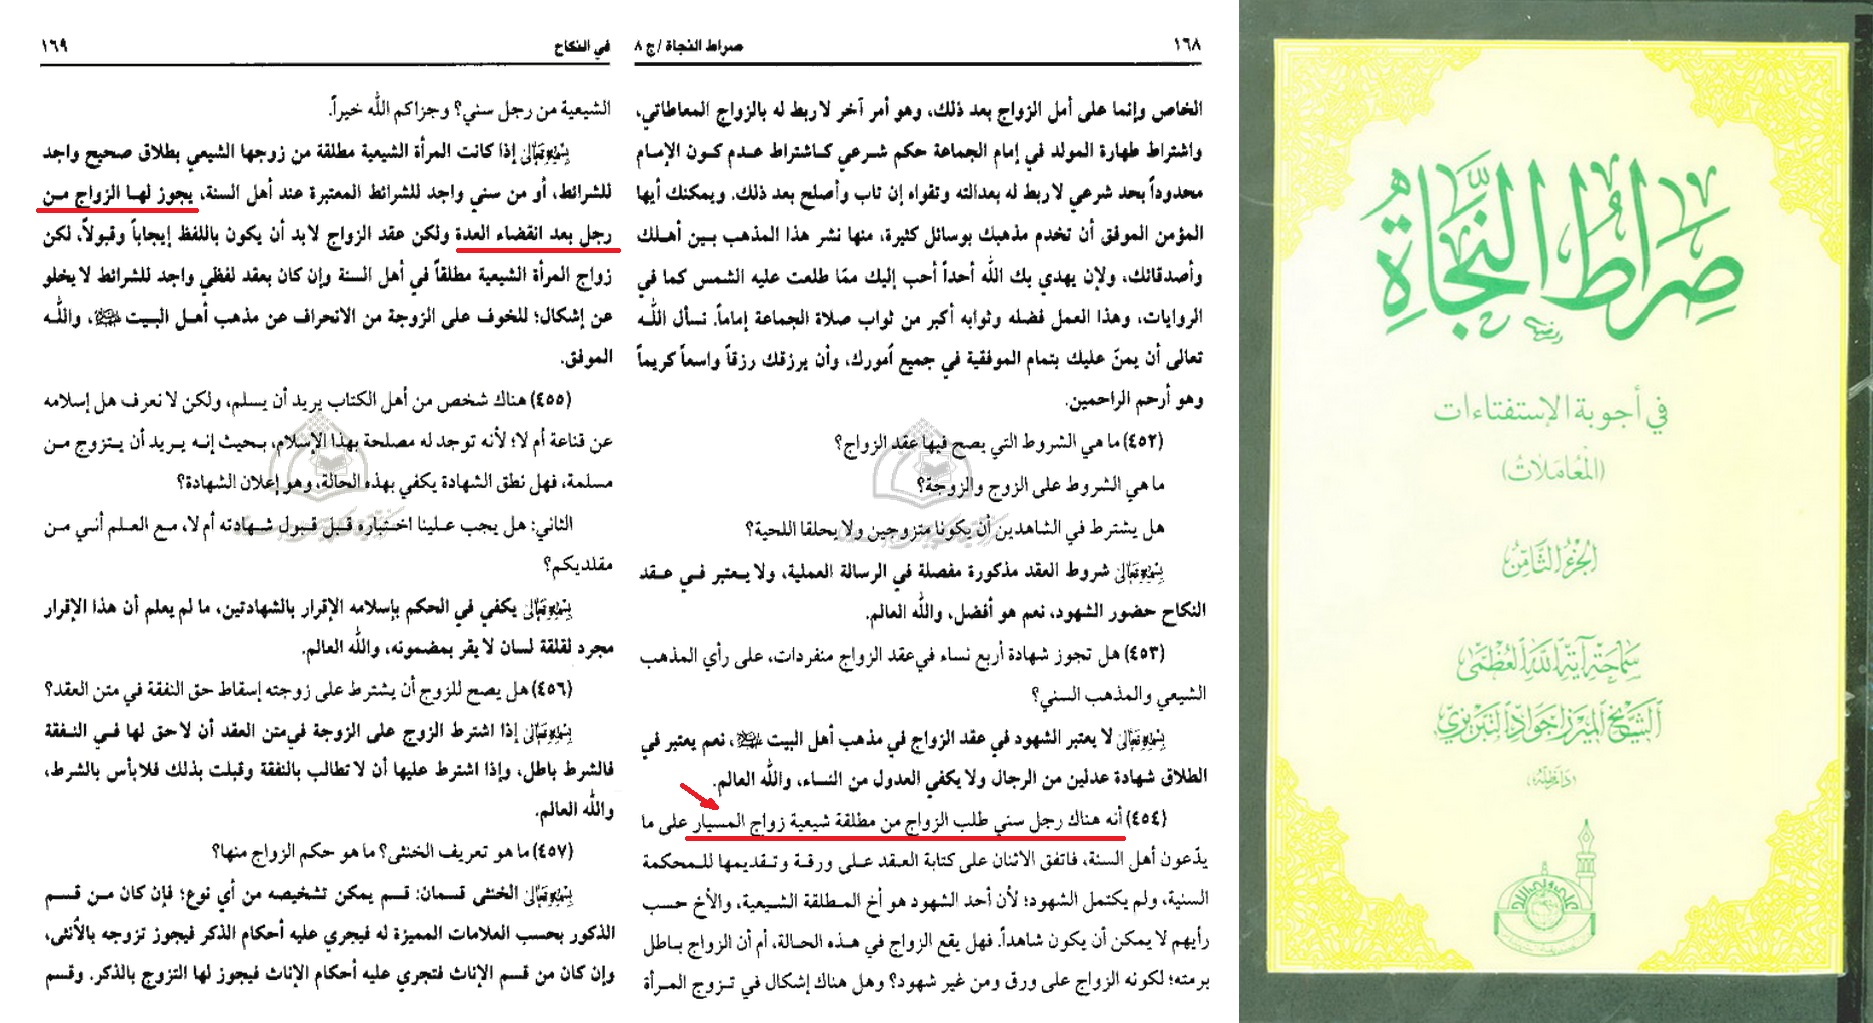 ١٦٨ صراط النجاة / ج ٨
الخاص وإنما على أمل الزواج بعد ذلك، وهو أمر آخر لا ربط له بالزواج المعاطاتي،
واشتراط طهارة المولد في إمام الجماعة حكم شرعي كاشتراط عدم كون الإمام
محدوداً بحد شرعي لا ربط له بعدالته وتقواه إن تاب وأصلح بعد ذلك. ويمكنك أيها
المؤمن الموفق أن تخدم مذهبك بوسائل كثيرة، منها نشر هذا المذهب بين أهلك
وأصدقائك، ولإن يهدي بك الله أحداً أحب إليك ممّا طلعت عليه الشمس كما في
الروايات، وهذا العمل فضله وثوابه أكبر من ثواب صلاة الجماعة إماماً. نسأل الله
تعالى أن يمنّ عليك بتمام الموفقية في جميع أمورك، وأن يرزقك رزقاً واسعاً كريماً
وهو أرحم الراحمين.
(٤٥٢) ما هي الشروط التي يصح فيها عقد الزواج؟
ما هي الشروط على الزوج والزوجة؟
هل يشترط في الشاهدين أن يكونا متزوجين ولا يحلقا اللحية؟
بسمه تعالى شروط العقد مذكورة مفصلة في الرسالة العملية، ولا يعتبر في عقد
النكاح حضور الشهود، نعم هو أفضل، والله العالم.
(٤٥٣) هل تجوز شهادة أربع نساء في عقد الزواج منفردات، على رأي المذهب
الشيعي والمذهب السني؟
بسمه تعالى لا يعتبر الشهود في عقد الزواج في مذهب أهل البيت، نعم يعتبر في
الطلاق شهادة عدلين من الرجال ولا يكفي العدول من النساء، والله العالم.
(٤٥٤) أنه هناك رجل سني طلب الزواج من مطلقة شيعية زواج المسيار على ما
يدّعون أهل السنة، فاتفق الاثنان على كتابة العقد على ورقة وتقديمها للمحكمة
السنية، ولم يكتمل الشهود؛ لأن أحد الشهود هو أخ المطلقة الشيعية، والأخ حسب
رأيهم لا يمكن أن يكون شاهداً. فهل يقع الزواج في هذه الحالة، أم أن الزواج باطل
برمته؛ لكونه الزواج على ورق ومن غير شهود؟ وهل هناك إشكال في تزوج المرأة
في النكاح ١٦٩
الشيعية من رجل سني؟ وجزاكم الله خيراً.
بسمه تعالى إذا كانت المرأة الشيعية مطلقة من زوجها الشيعي بطلاق صحيح واجد
للشرائط، أو من سني واجد للشرائط المعتبرة عند أهل السنة، يجوز لها الزواج من
رجل بعد انقضاء العدة ولكن عقد الزواج لابد أن يكون باللفظ إيجاباً وقبولاً، لكن
زواج المرأة الشيعية مطلقاً في أهل السنة وإن كان بعقد لفظي واجد للشرائط لا يخلو
عن إشكال؛ للخوف على الزوجة من الانحراف عن مذهب أهل البيت، والله
الموفق.
(٤٥٥) هناك شخص من أهل الكتاب يريد أن يسلم، ولكن لا نعرف هل إسلامه
عن قناعة أم لا؛ لأنه توجد له مصلحة بهذا الإسلام، بحيث إنه يريد أن يتزوج من
مسلمة، فهل نطق الشهادة يكفي بهذه الحالة، وهو إعلان الشهادة؟
الثاني: هل يجب علينا اختباره قبل قبول شهادته أم لا، مع العلم أني من
مقلديكم؟
بسمه تعالى يكفي في الحكم بإسلامه الإقرار بالشهادتين، ما لم يعلم أن هذا الإقرار
مجرد لقلقة لسان لا يقر بمضمونه، والله العالم.
(٤٥٦) هل يصح للزوج أن يشترط على زوجته إسقاط حق النفقة في متن العقد؟
بسمه تعالى إذا اشترط الزوج على الزوجة في متن العقد أن لا حق لها في النفقة
فالشرط باطل، وإذا اشترط عليها أن لا تطالب بالنفقة وقبلت بذلك فلابأس بالشرط،
والله العالم.
(٤٥٧) ما هو تعريف الخنثى؟ ما هو حكم الزواج منها؟
بسمه تعالى الخنثى قسمان: قسم يمكن تشخيصه من أي نوع؛ فإن كان من قسم
الذكور بحسب العلامات المميزة له فيجري عليه أحكام الذكر فيجوز تزوجه بالأنثى،
وإن كان من قسم الإناث فتجري عليه أحكام الإناث فيجوز لها التزوج بالذكر. وقسم
صراط النجاة
في أجوبة الإستفتاءات
(المعاملات)
الجزء الثامن
سماحة آية الله العظمى
الشيخ الميرزا جواد التبريزي
(دام ظله)
علي ولي الله